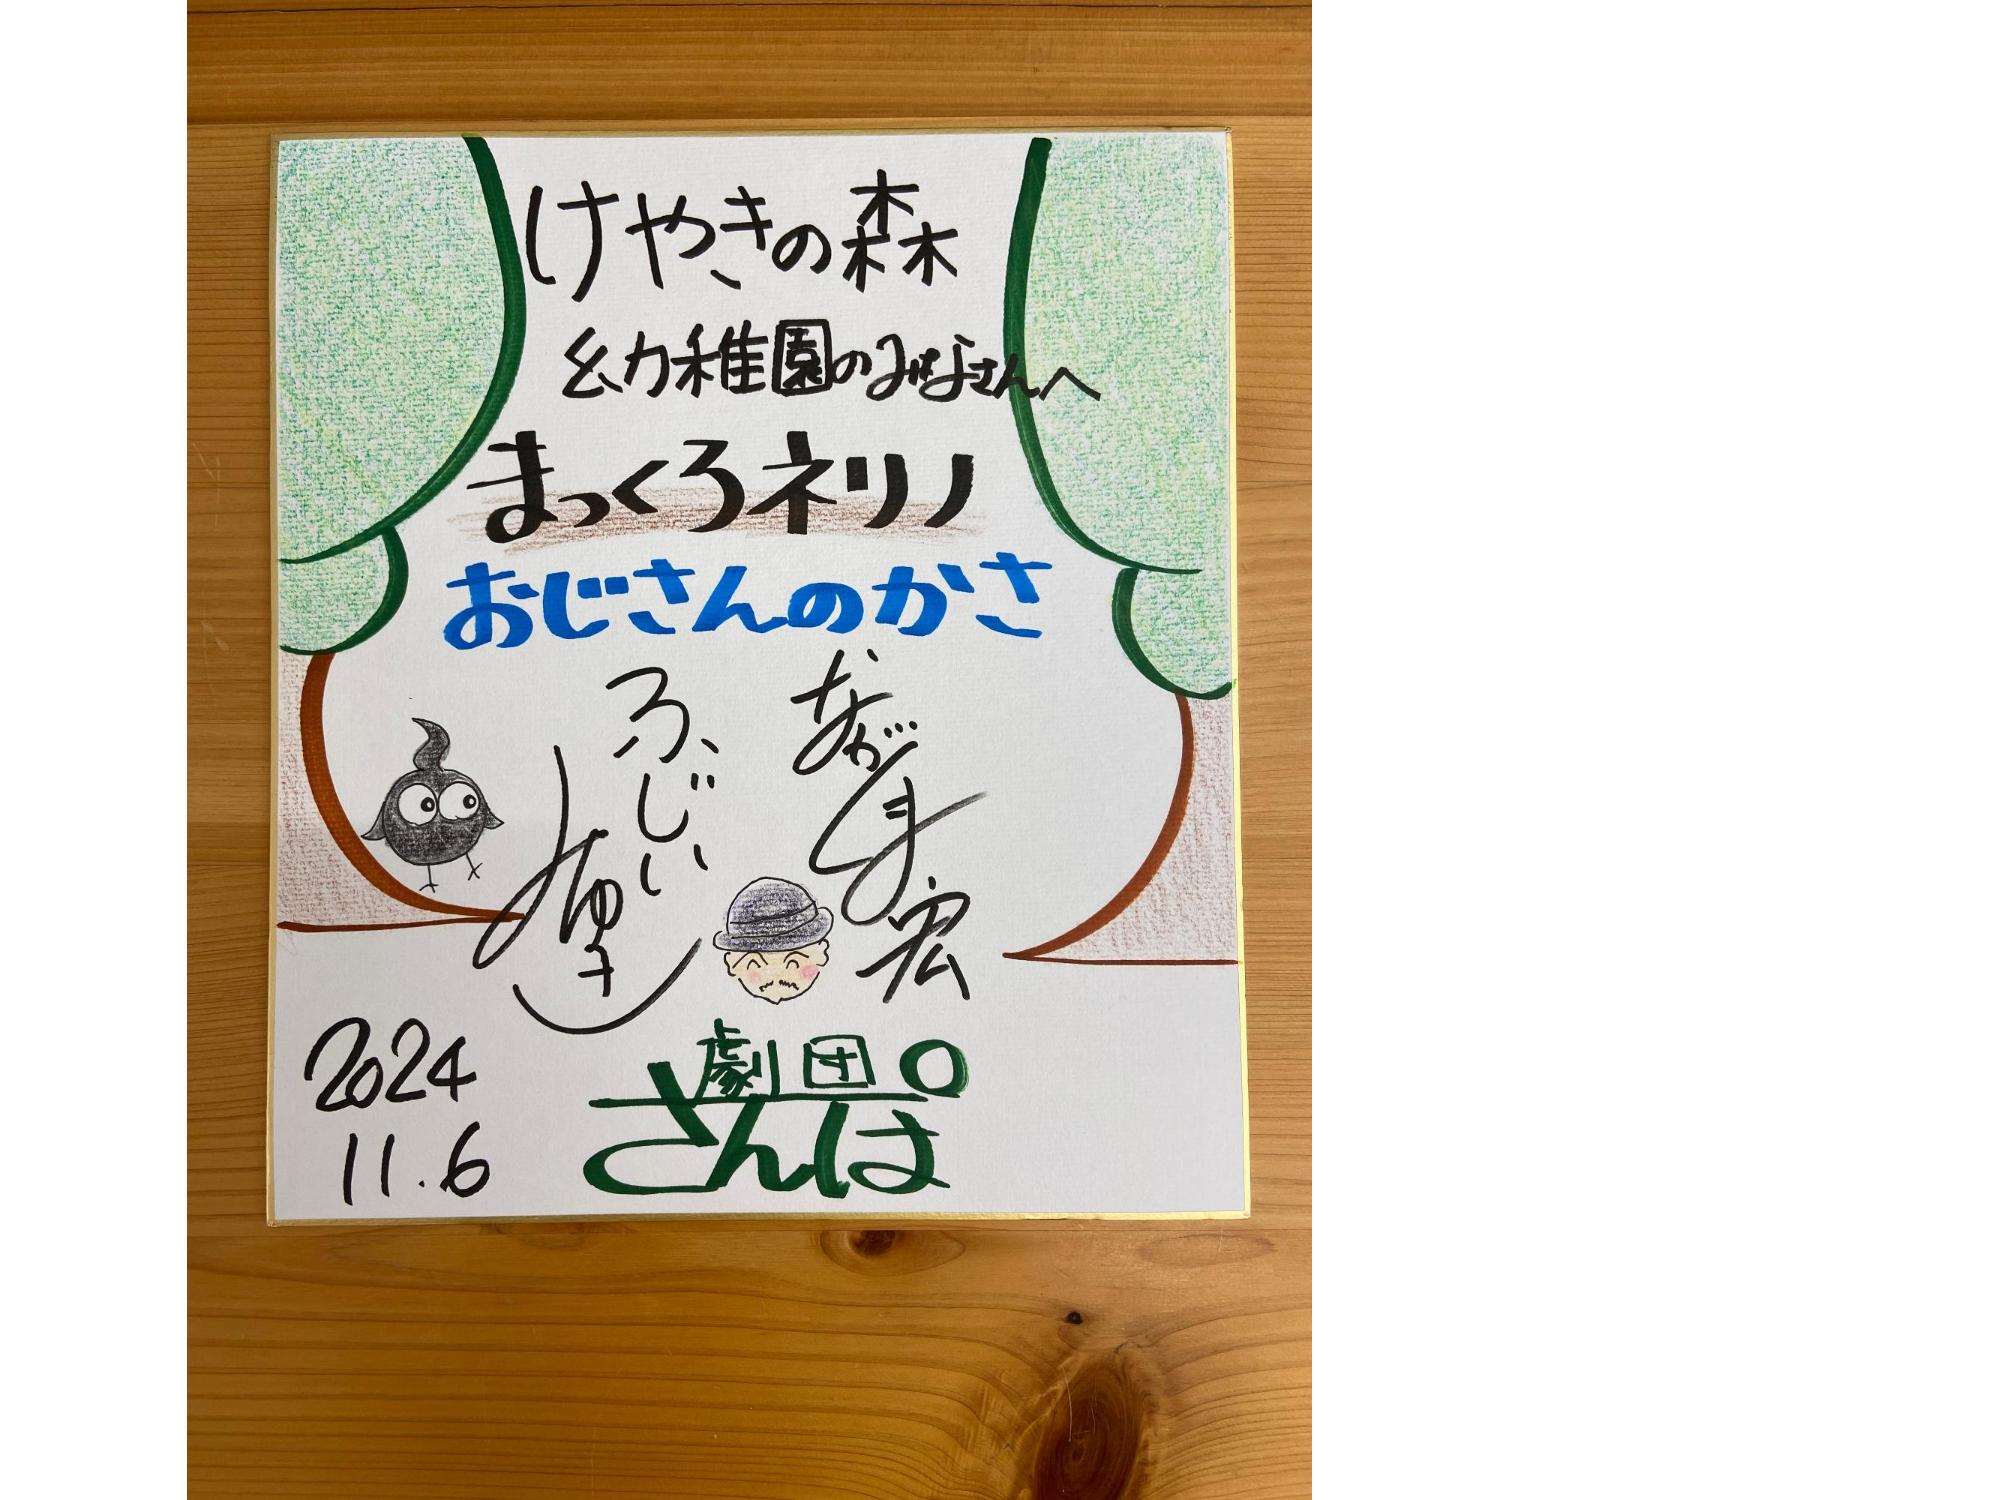 けやきの森
幼稚園のみなさんへ
まっくろネリノ
おじさんのかさ
ふじい
宏
劇団
さんぽ
2024
11.6